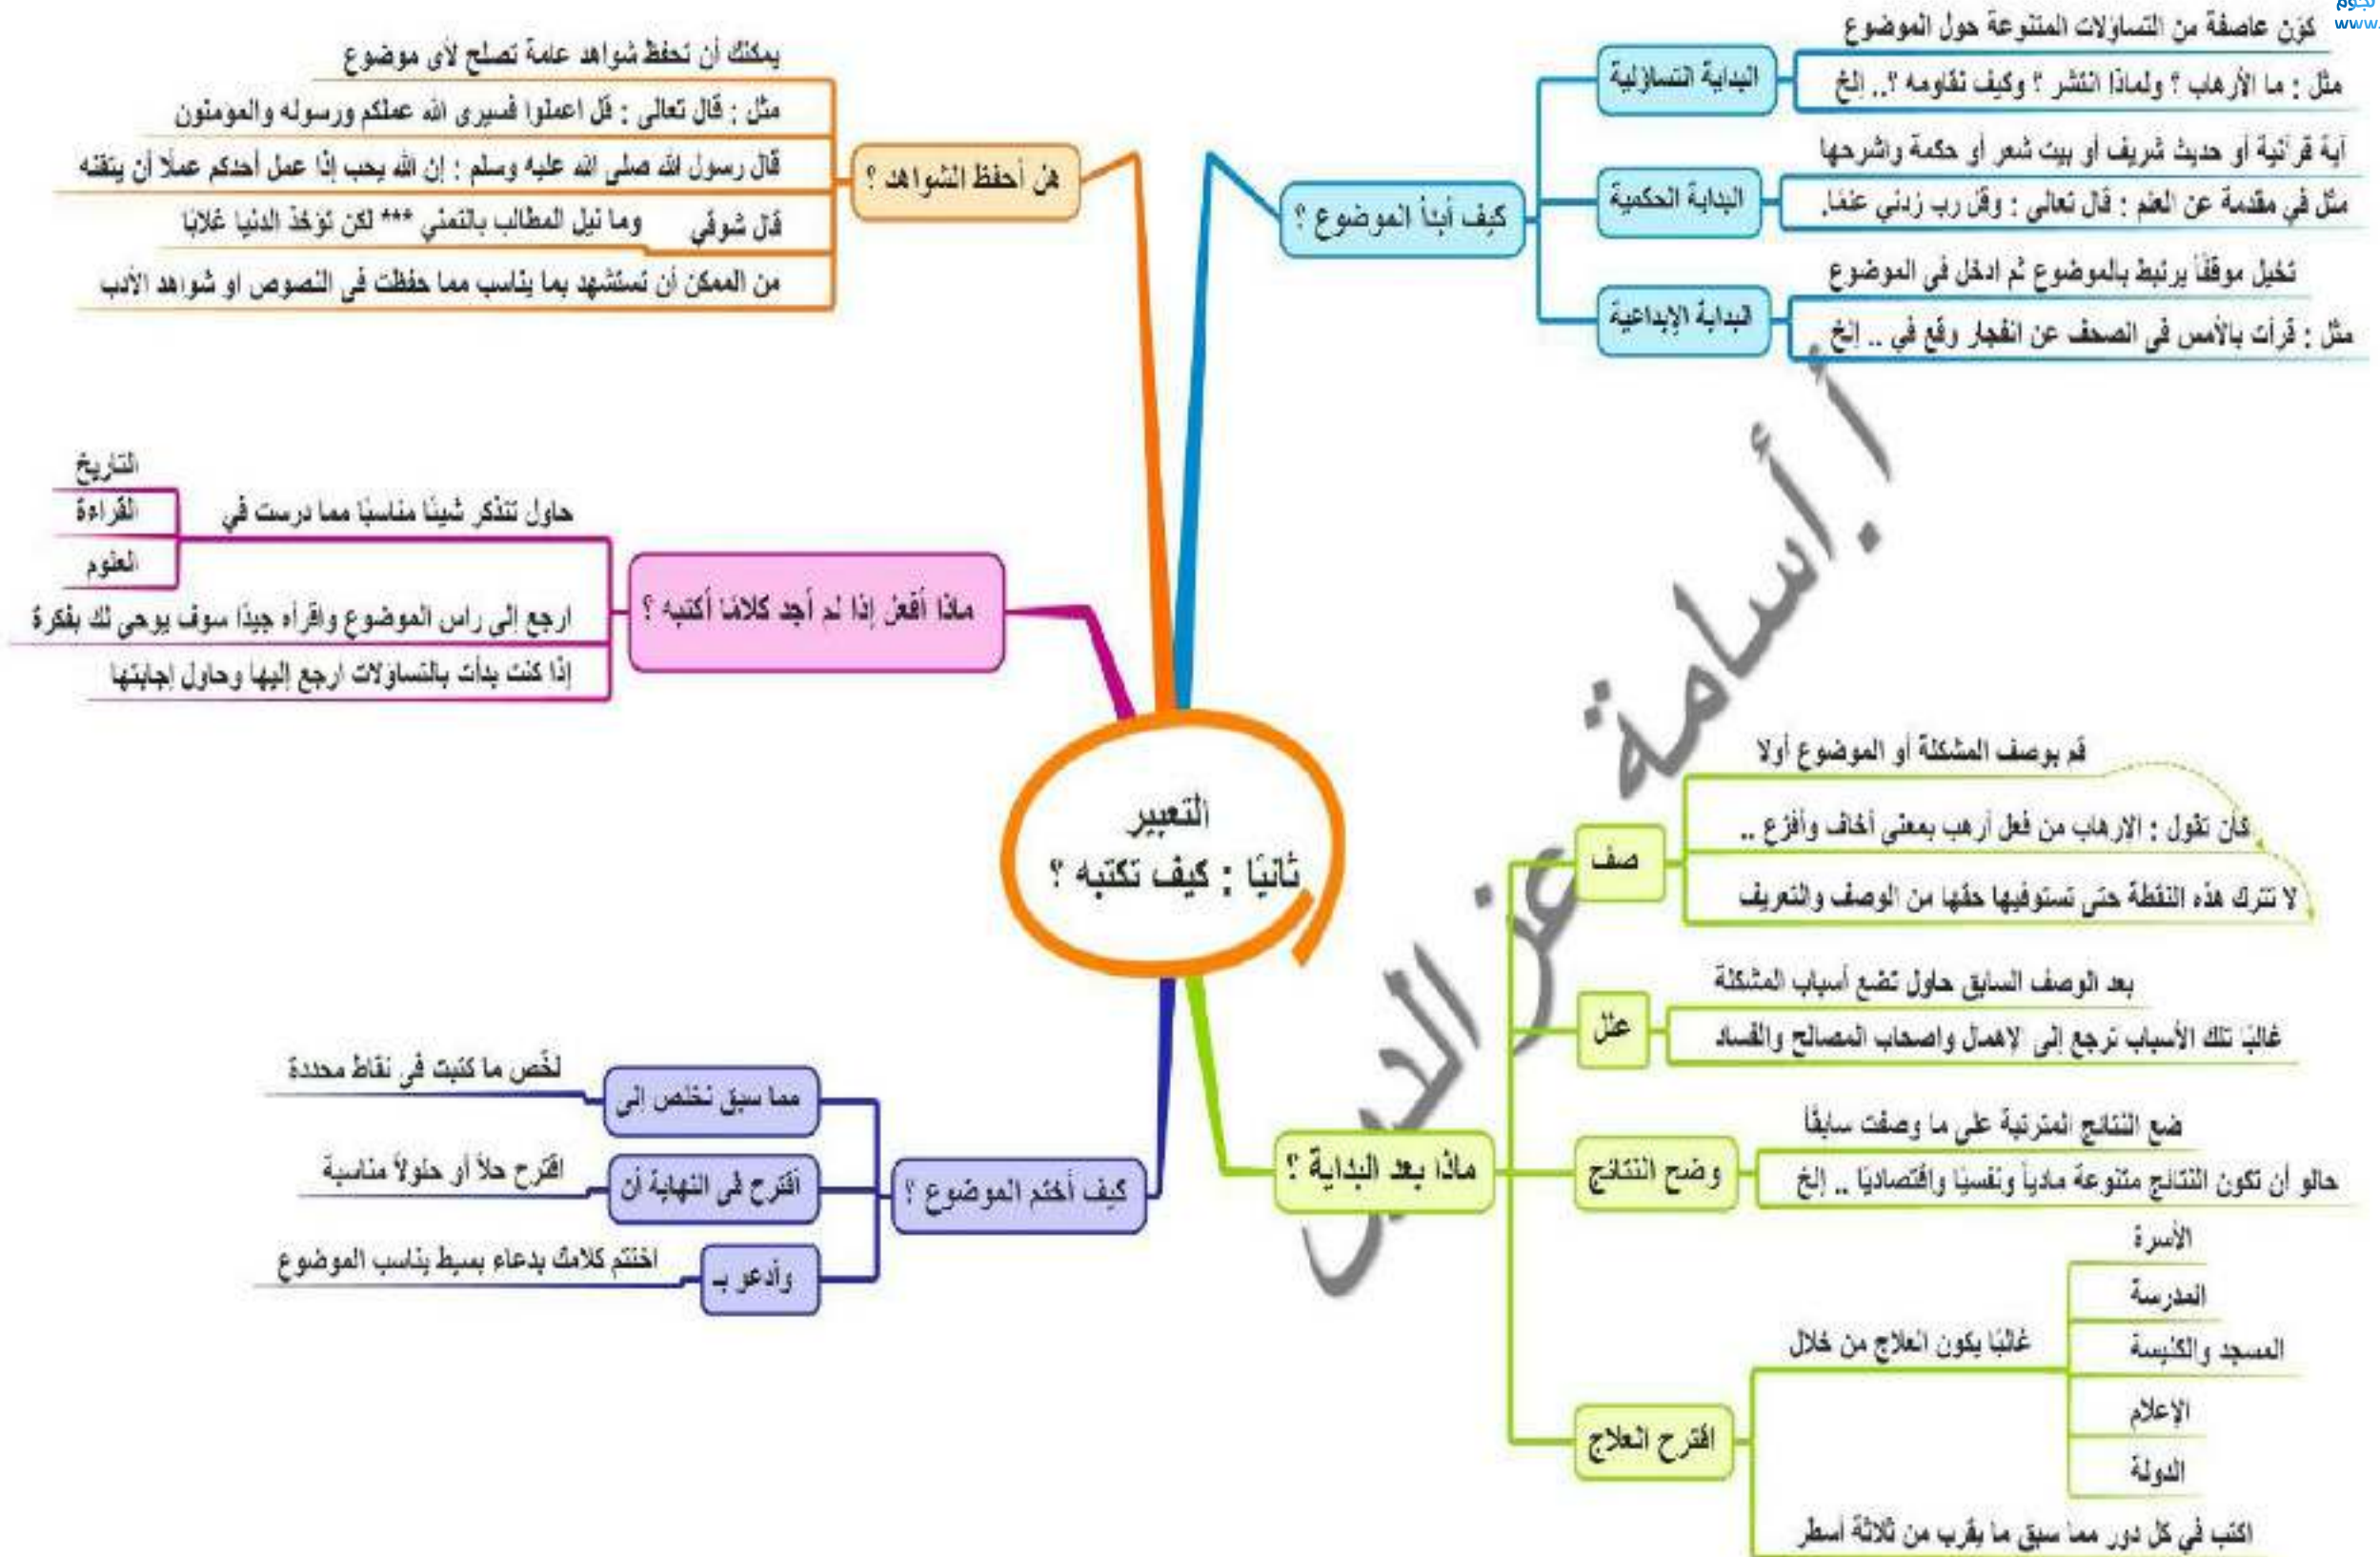 التعبير
ثانيًا : كيف تكتبه ؟
كيف أبدأ الموضوع ؟
البداية التساؤلية
كوّن عاصفة من التساؤلات المتنوعة حول الموضوع
مثل : ما الأرهاب ؟ ولماذا انتشر ؟ وكيف نقاومه ؟.. إلخ
البداية الحكمية
آية قرآنية أو حديث شريف أو بيت شعر أو حكمة واشرحها
مثل في مقدمة عن العلم : قال تعالى : وقل رب زدني علمًا.
البداية الإبداعية
تخيل موقفًا يرتبط بالموضوع ثم ادخل فى الموضوع
مثل : قرأت بالأمس فى الصحف عن انفجار وقع في .. إلخ
ماذا بعد البداية ؟
صف
قم بوصف المشكلة أو الموضوع أولا
كأن تقول : الإرهاب من فعل أرهب بمعنى أخاف وأفزع ..
لا تترك هذه النقطة حتى تستوفيها حقها من الوصف والتعريف
علل
بعد الوصف السابق حاول تضع أسباب المشكلة
غالبًا تلك الأسباب ترجع إلى لإهمال واصحاب المصالح والفساد
وضح النتائج
ضع النتائج المترتبة على ما وصفت سابقًا
حالو أن تكون النتائج متنوعة مادياً ونفسيًا واقتصاديًا .. إلخ
اقترح العلاج
غالبًا يكون العلاج من خلال
الأسرة
المدرسة
المسجد والكنيسة
الإعلام
الدولة
اكتب في كل دور مما سبق ما يقرب من ثلاثة أسطر
كيف أختم الموضوع ؟
مما سبق نخلص إلى
لخّص ما كتبت فى نقاط محددة
أقترح فى النهاية أن
اقترح حلاً أو حلولاً مناسبة
وأدعو بـ
اختتم كلامك بدعاء بسيط يناسب الموضوع
ماذا أفعل إذا لم أجد كلامًا أكتبه ؟
حاول تتذكر شيئًا مناسبًا مما درست في
التاريخ
القراءة
العلوم
ارجع إلى راس الموضوع واقرأه جيدًا سوف يوحى لك بفكرة
إذا كنت بدأت بالتساؤلات ارجع إليها وحاول إجابتها
هل أحفظ الشواهد ؟
يمكنك أن تحفظ شواهد عامة تصلح لأى موضوع
مثل : قال تعالى : قل اعملوا فسيرى الله عملكم ورسوله والمومنون
قال رسول الله صلى الله عليه وسلم : إن الله يحب إذا عمل أحدكم عملًا أن يتقنه
قال شوقي وما نيل المطالب بالتمني *** لكن تؤخذ الدنيا غلابًا
من الممكن أن تستشهد بما يناسب مما حفظت فى النصوص او شواهد الأدب
أ . أسامة عز الدين